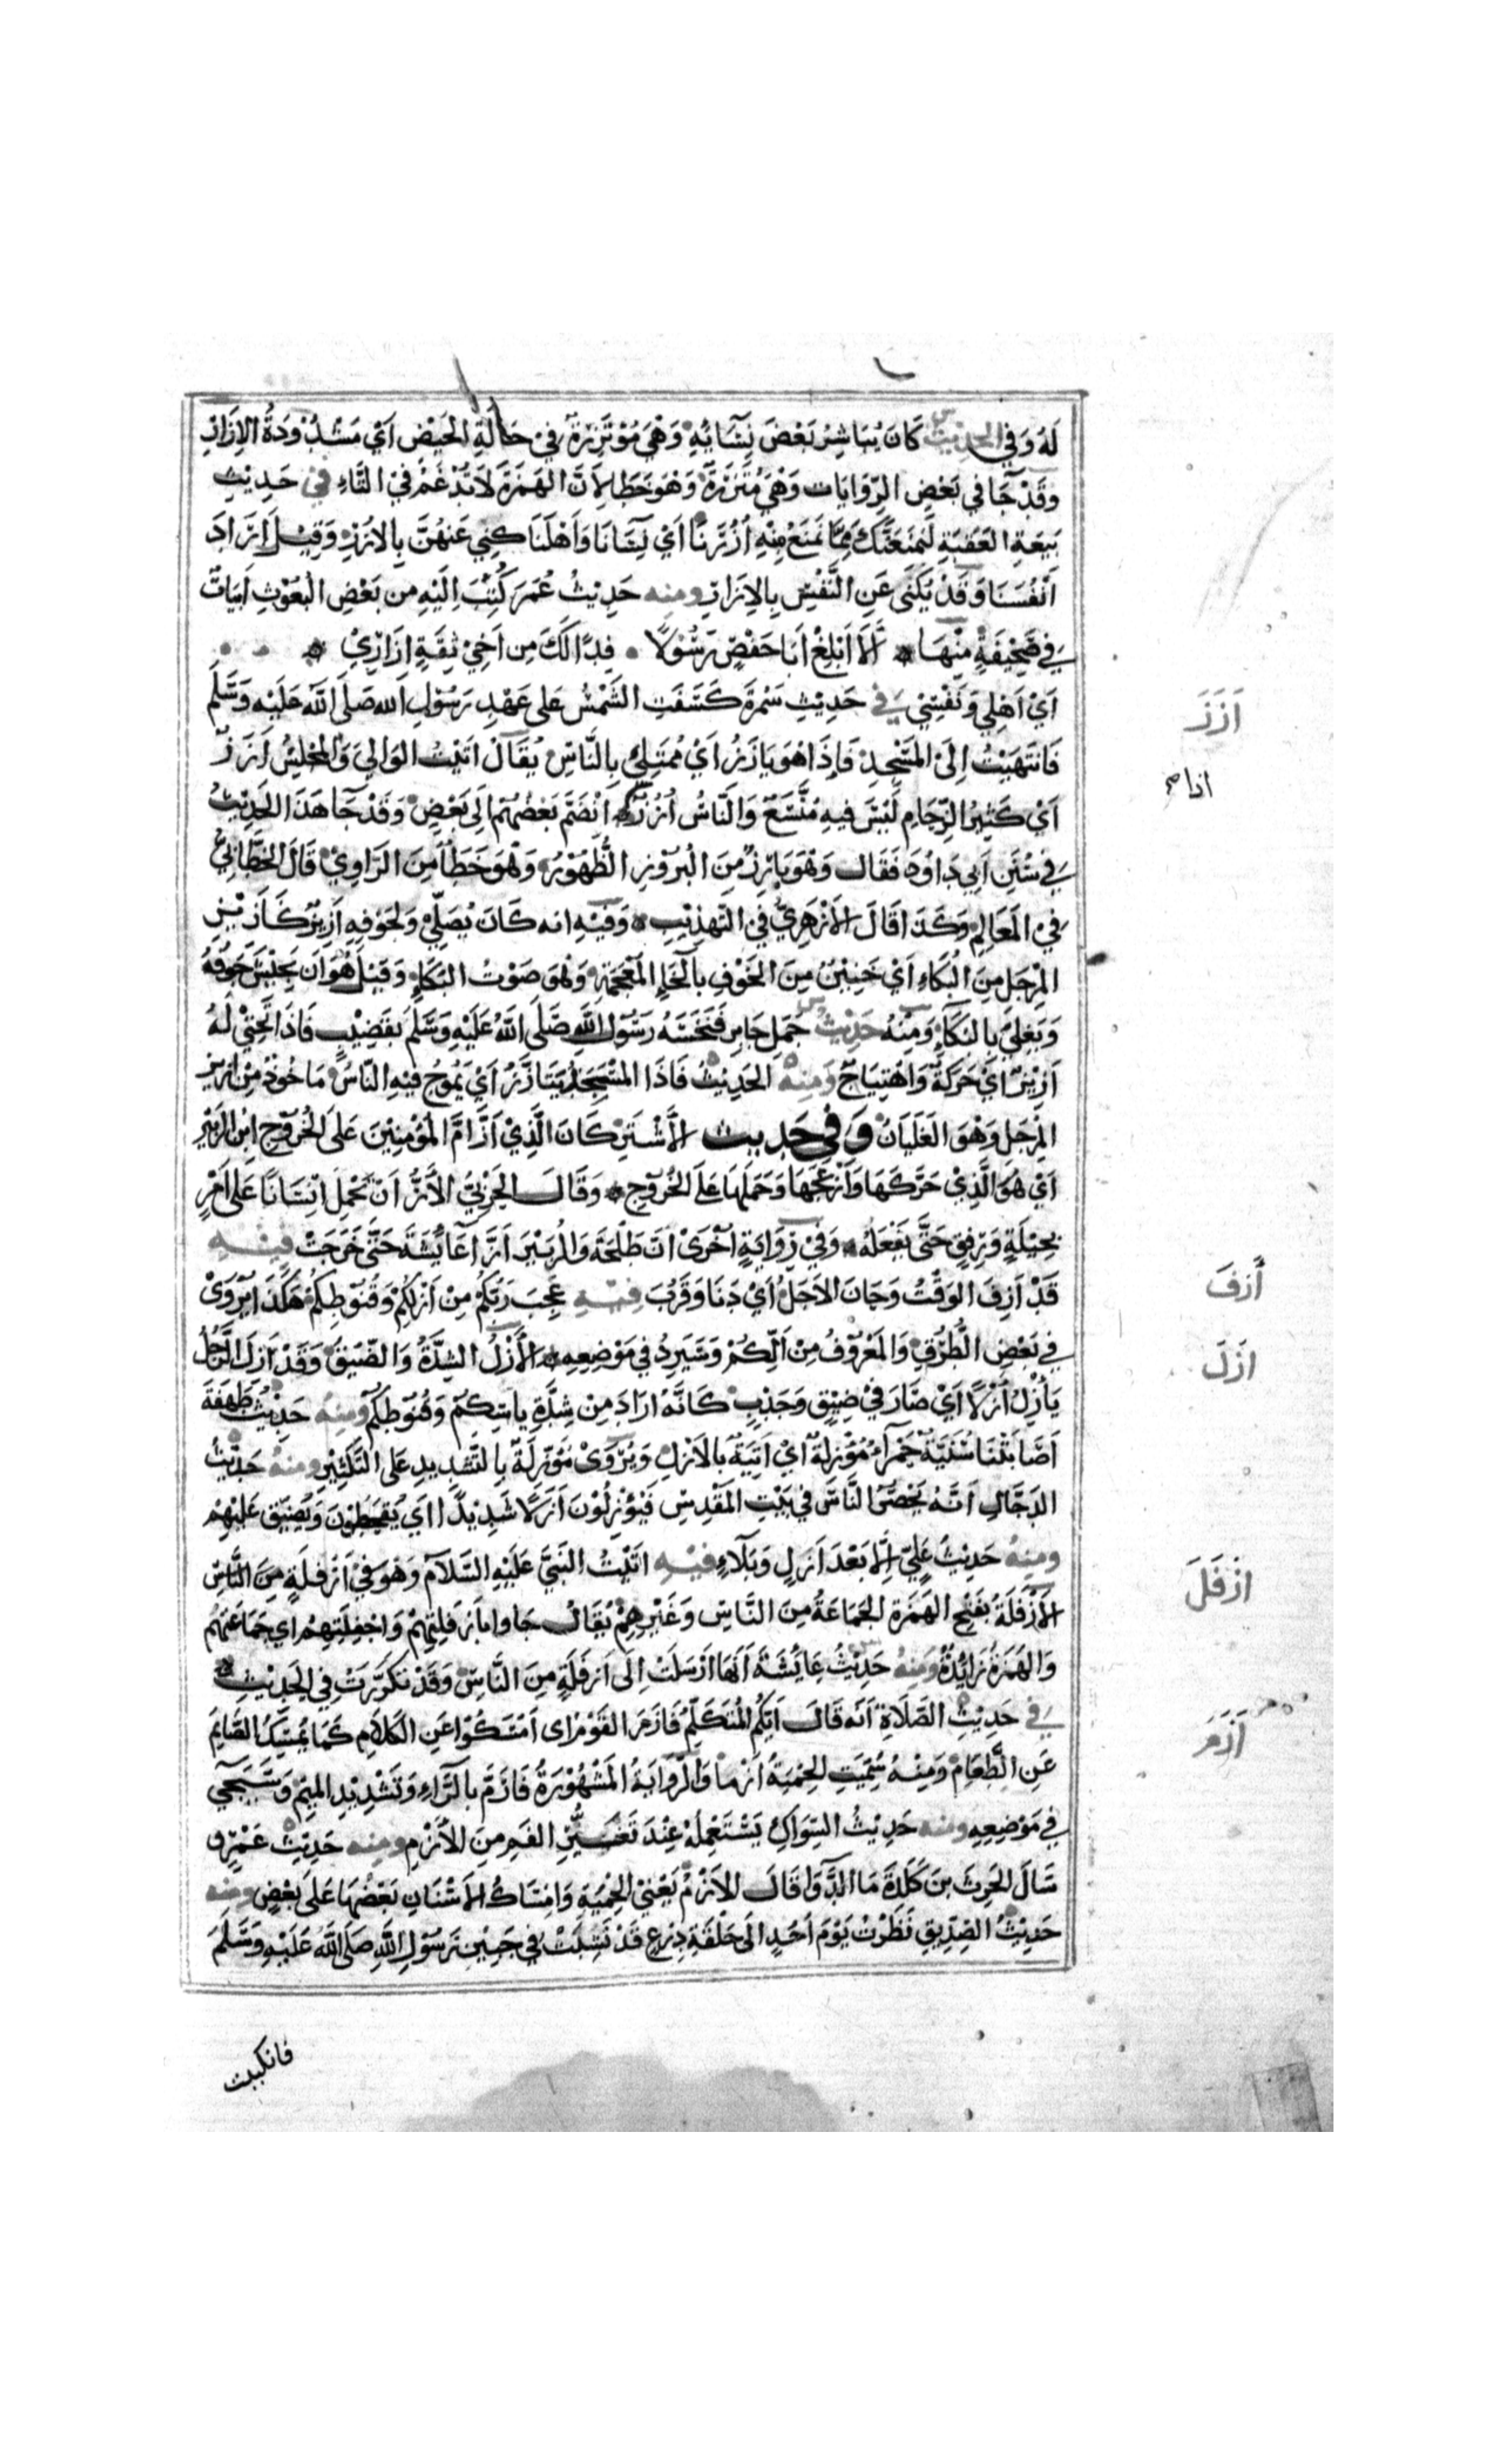 لَهُ وَفِي الحَدِيْث كَانَ يُبَاشِرُ بَعْضَ نِسَائِهِ وَهْيَ مُؤْتَزِرَةٌ فِيْ حَالَةِ الحَيْضِ اَيْ مَشْدُوْدَةُ الاِزَارِ
وَقَدْ جَا في بَعْضِ الرِّوَايَات وَهْيَ مُتَّزِرَةٌ وَهْوَ خَطَا لِاَنَّ الهَمْزَةَ لَا تُدْغَمُ فيْ التَّاءِ فيْ حَدِيْثِ
بَيْعَةِ العَقَبَةِ لَنَمْنَعَنَّكَ مِمَّا نَمْنَعُ مِنْهِ اُزُرَنَا اَيْ نِسَانَا وَاَهْلَنَا كَنِيَ عَنْهُنَّ بِالاُزُرِ وَقِيْلَ اَرَادَ
اَنْفُسَنَا وَقَدْ يُكْنَى عَنِ النَّفْسِ بِالاِزَارِ ومنه حَدِيْثُ عُمَرَ كُتِبَ اِلَيْهِ من بَعْضِ الْبُعُوْثِ اَبْيَاتٌ
فِي صَحِيْفَةٍ مِنْهَا اَلَا اَبْلِغْ اَبَا حَفْصٍ رَسُوْلًا فِدًا لَكَ مِن اَخِيْ ثِقَةٍ اِزَارِيْ
اَيْ اَهْلِي وَنَفْسِيْ فِي حَدِيْثِ سَمُرَةَ كَسَفَتِ الشَّمْسُ عَلى عَهْدِ رَسُوْلِ الله صَلَّى اللهُ عَلَيْهِ وَسَلَّمَ
اَزَزَ
فَانْتَهَيْتُ اِلَىْ المَسْجِدْ فَاِذَا هُوَ يَازَزُ اَيْ مُمْتَلِئ بِالنَّاسِ يُقَالْ اَتَيْتُ الوَالِيَ وَالمجْلِسُ اَزَزٌ
اَيْ كَثِيْرُ الزِّحَامِ لَيْسَ فيهِ مُتَّسَعٌ وَالنَّاسُ اُزُزٌ اِنْضَمَّ بَعْضُهُمْ اِلَى بَعْضٍ وَقَدْ جَا هَذَا الحَدِيْثُ
فِي سُنَنِ اَبِي دَاوُدَ فَقَال وَهْوَ بَارِزٌ مِنَ الْبُرُوْزِ الظُّهُوْرُ وَهْوَ خَطَأ مِنَ الرَّاوِيْ قَالَ الخَطَّابِيُّ
فيْ المَعَالِمِ وَكَذَا قَالَ الاَزْهَرِيُّ فيْ التَّهذِيْبِ وَفِيْهِ انه كَانَ يُصَلِّيْ وَلِجَوْفِهِ اَزِيْزٌ كَاَزِيْزِ
المِرْجَلِ مِنَ الْبُكَاءِ اَيْ خَنِيْنٌ مِنَ الخَوْفِ بِالخَاءِ المُعْجَمَةِ وَهْوَ صَوْتُ البُكَاءِ وَقِيْلَ هُوَ اَن يَجِيْشَ جَوْفُهُ
وَيَغْلِيَ بِالبُكَاءِ وَمِنْهُ حَدِيْثُ جَمَلِ جَابِر فَنَخَسَهُ رَسُوْلُ اللهِ صَلَّى اللهُ عَلَيْهِ وَسَلَّمَ بِقَضِيْبٍ فَاِذَا تَحْتِيْ لَهُ
اَزِيْزٌ اَيْ حَرَكَةٌ وَاهْتِيَاجٌ وَمِنْهُ الحَدِيْثُ فَاِذَا المَسْجِدُ يَتَاَزَّزُ اَيْ يَمُوْجُ فِيْهِ النَّاسُ مَاخُوْذٌ مِنْ اَزِيْزِ
المِرْجَلِ وَهْوَ الغَلَيَانُ وَفِي حَدِيث الاَشْتَرِ كَانَ الَّذِيْ اَزَّ اُمَّ المُؤْمِنِيْنَ عَلَى الخُرُوْجِ ابْنُ الزُّبَيْرِ
اَيْ هُوَ الَّذِيْ حَرَّكَهَا وَاَزْعَجَهَا وَحَمَلَهَا عَلَى الخُرُوْجِ وَقَالَ الحَرْبِيُّ الاَزُّ اَنْ تَحْمِلَ اِنْسَانًا عَلَى اَمْرٍ
بِحِيْلَةٍ وَرِفْقٍ حَتَّى يَفْعَلَهُ وَفيْ رِوَايَةٍ اُخْرَى اَنَّ طَلْحَةَ وَالزُبَيْرَ اَزَّا عَائِشَةَ حَتَّى خَرَجَتْ فِيْهِ
أزفَ
قَدْ اَزِفَ الوَقْتُ وَحَانَ الاَجَلُ اَيْ دَنَا وَقَرُبَ فِيْهِ عَجِبَ رَبُّكُمْ مِنْ اَزْلِكُمْ وَقُنُوْطِكُمْ هَكَذَا يُرْوَىْ
ازلَ
فِي بَعْضِ الطُّرُقِ وَالمَعْرُوْفُ مِنْ اَلِّكُمْ وَسَيَرِدُ في مَوْضِعِهِ الاَزْلُ الشِدَّةُ وَالضّيْقُ وَقَدْ اَزَلَ الرَّجُلُ
يَأْزِلُ اَزْلًا اَيْ صَارَ فيْ ضِيْقٍ وَجَدْبٍ كَانَّهُ ارَادَ مِنْ شِدَّةِ يَاسِكُمْ وَقُنُوْطِكُمْ وَمِنْهُ حَدِيْثُ طَهْفَةَ
اَصَابَتْنَا سُنَيَّةٌ حَمْرَاءُ مُؤْزِلَةٌ ايْ اَتِيَةٌ بِالاَزْلِ وَيُرْوَىْ مُؤَزِّلَةٌ بِالتَّشْدِيدِ عَلى التَّكْثِيْرِ ومنهُ حَدِيْثُ
الدَجَّالِ اَنَّهُ يَحْصُرُ النَّاسَ في بَيْتِ المَقْدِسِ فَيُؤْزَلُوْنَ اَزْلًا شَدِيْدًا اَيْ يُقْحَطُوْنَ وَيُضَيَّقُ عَلَيْهِمْ
ومنهُ حَدِيْثُ عَلِيٍّ اِلَّا بَعْدَ اَزْلٍ وَبَلَاءٍ فيْهِ اتَيْتُ النَّبِيَّ عَلَيْهِ السَّلَامُ وَهُوَ فيْ اَزْفَلَةٍ مِنَ النَّاسِ
ازْفَلَ
الاَزْفَلَةُ بِفَتْحِ الهَمْزَةِ الجَمَاعَةُ مِنَ النَّاسِ وَغَيْرِهِمْ يُقَالُ جَاوا بِاَزْفَلَتِهِمْ وَاَجْفَلَتِهِمْ اي جَمَاعَتِهِمْ
وَالهَمْزَةُ زَايِدَةٌ وَمِنْهُ حَدِيْثُ عَائِشَةَ اَنَّهَا ارْسَلَتْ اِلَى اَزفَلَةٍ مِنَ النَّاسِ وَقَدْ تَكَرَّرَتْ فِي الحَدِيْثِ
فِي حَدِيْثِ الصَّلَاةِ اَنَّه قَالَ اَيُّكُم المُتَكَلِّمُ فَاَزَمَ القَوْمُ اي اَمْسَكُوْا عَنِ الكَلَامِ كَمَا يُمْسِكُ الصَّايِمُ
اَزَمَ
عَنِ الطَّعَامِ وَمِنْهُ سُمِّيَتِ الحِمْيَةُ اَزْمًا وَالرِّوَايَةُ المَشْهُوْرَةُ فَاَرَمَّ بِالرَّاءِ وَتَشْدِيْدِ المِيْمِ وَسَيَجِيْ
فِي مَوْضِعِهِ ومنه حَدِيْثُ السِّوَاكِ يَسْتَعْمِلُهُ عِنْدَ تَغَيُّرِ الفَمِ مِنَ الاَزْمِ ومنه حَدِيْثُ عُمَرَ
سَاَلَ الحَرِثَ بنَ كَلَدَةَ مَا الدَّوَا قَالَ الاَزْمُ يَعْنِيْ الحِمْيَةِ وَاِمْسَاكُ الاَسْنَانِ بَعْضُهَا عَلَى بَعْضٍ ومنه
حَدِيْثُ الصِّدِّيقِ نَظَرْتُ يَوْمَ اُحُدٍ اِلَى حَلْقَةِ دِرْعٍ قَدْ نَشِبَتْ في جَبِيْنِ رَسُوْلِ اللهِ صَلَّى اللهُ عَلَيْهِ وَسَلَّمَ
فانكببت